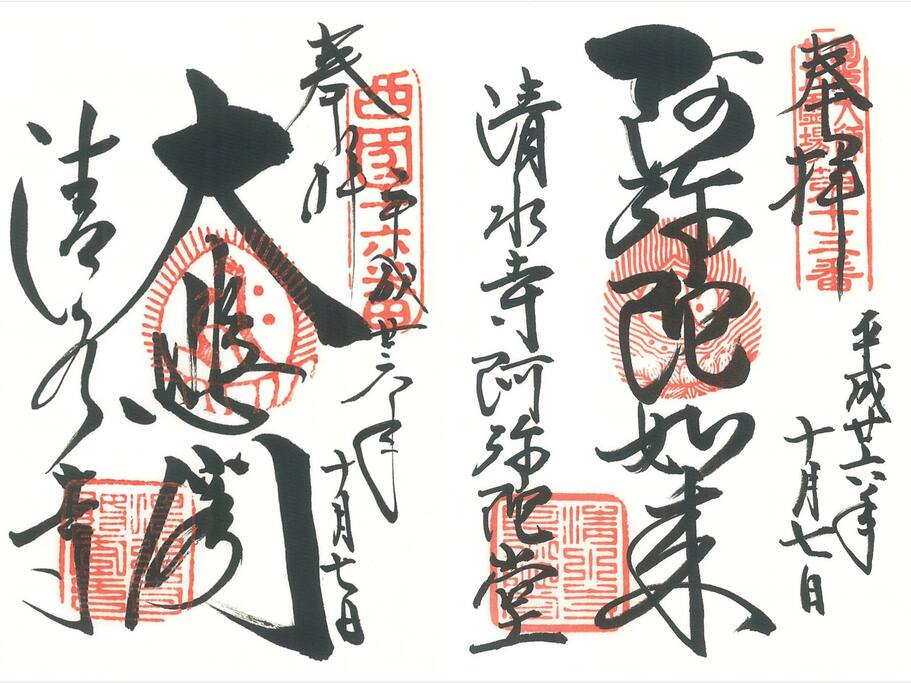 奉拝
平成廿六年
十月七日
阿弥陀如来
清水寺阿弥陀堂
第十三番
奉拝
西国十六番
平成廿六年
十月七日
大悲閣
清水寺